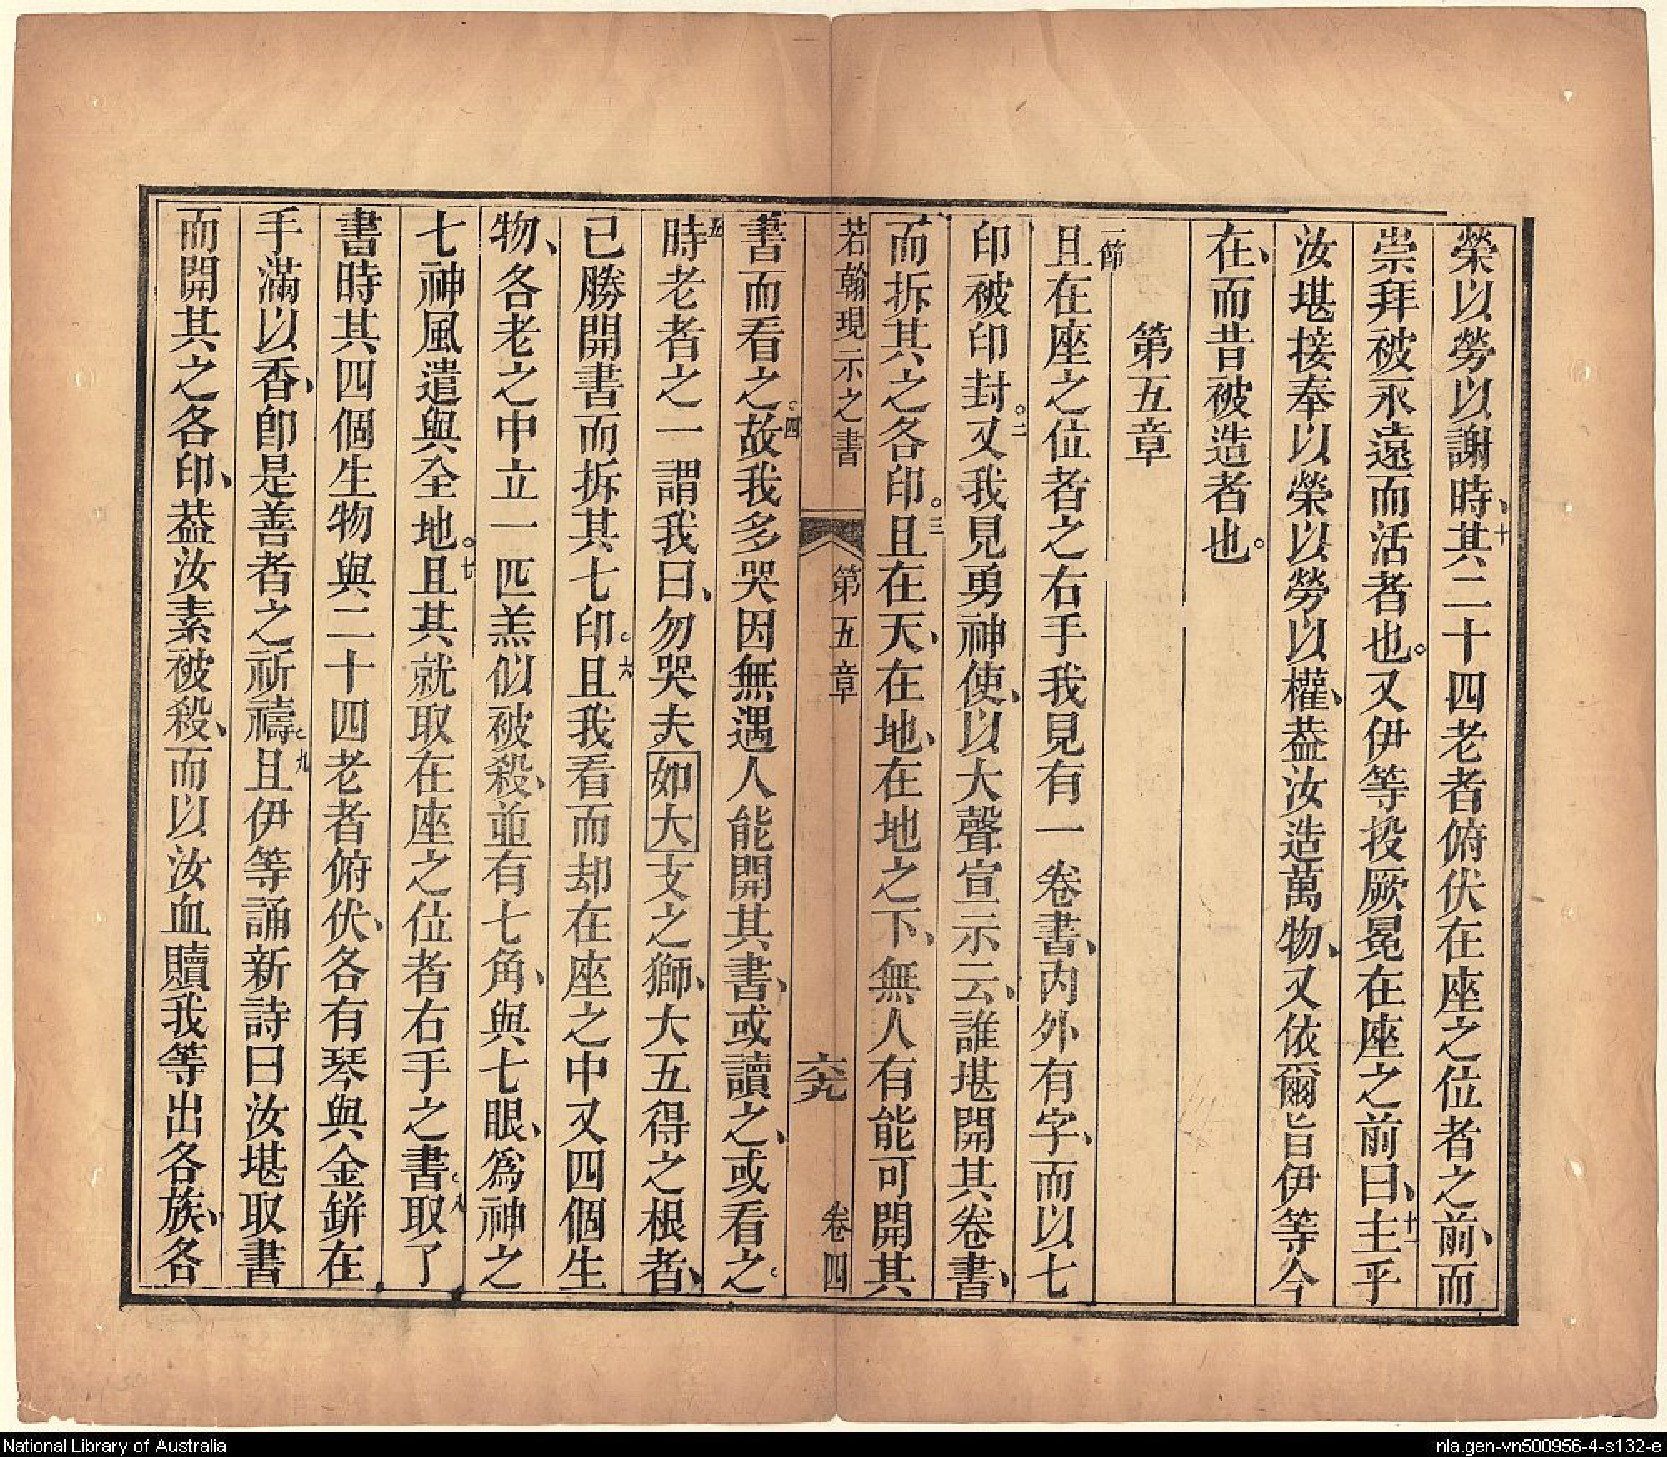 榮以勞以謝時、十其二十四老者俯伏在座之位者之前、而
崇拜被永遠而活者也。又伊等投厥冕在座之前曰、十一主乎
汝堪接奉以榮以勞以權、葢汝造萬物、又依爾旨伊等今
在、而昔被造者也。
第五章
一節且在座之位者之右手我見有一卷書、內外有字、而以七
印被印封。二又我見勇神使、以大聲宣示云、誰堪開其卷書、
而拆其之各印。三且在天、在地、在地之下、無人有能可開其
若翰現示之書
第五章
六九
卷四
書而看之。四故我多哭因無遇人能開其書、或讀之、或看之。
五時老者之一謂我曰、勿哭夫如大支之獅、大五得之根者、
已勝開書而拆其七印。六且我看而却在座之中又四個生
物、各老之中立一匹羔似被殺、並有七角、與七眼、爲神之
七神風遣與全地。七且其就取在座之位者右手之書。八取了
書時其四個生物與二十四老者俯伏、各有琴與金鉼在
手滿以香、卽是善者之祈禱。九且伊等誦新詩曰汝堪取書
而開其之各印、葢汝素被殺、而以汝血贖我等出各族、各
National Library of Australia
nla.gen-vn500956-4-s132-e